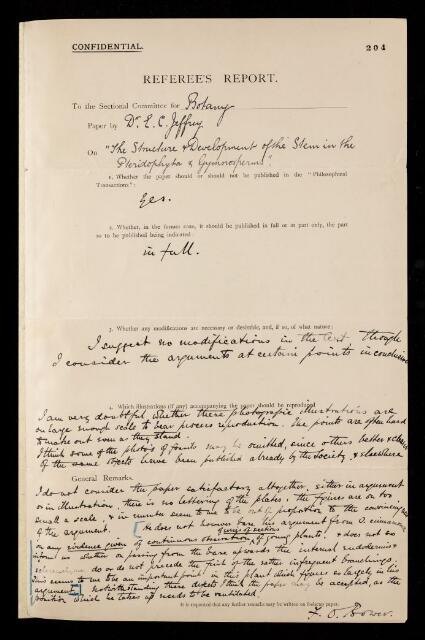 CONFIDENTIAL.
204
REFEREE'S REPORT.
To the Sectional Committee for Botany
Paper by Dr. E. C. Jeffrey
On "The Structure & Development of the Stem in the
Pteridophyta & Gymnosperms"
1. Whether the paper should or should not be published in the "Philosophical
Transactions":
Yes.
2. Whether, in the former case, it should be published in full or in part only, the part
so to be published being indicated:
in full.
3. Whether any modifications are necessary or desirable, and, if so, of what nature:
I suggest no modifications in the text though
I consider the arguments at certain points inconclusive
4. Which illustrations (if any) accompanying the paper should be reproduced
I am very doubtful whether these photographic illustrations are
on large enough scale to bear process reproduction. The points are often hard
to make out even as they stand.
I think some of the photos of fossils may be omitted, since others better &
of the same objects have been published already by the Society, & elsewhere
General Remarks.
I do not consider the paper satisfactory altogether, either in argument
or in illustration, there is no lettering of the plates, the figures are on too
small a scale, & in number seem to me to be out of proportion to the
of the argument. He does not however base his argument from O. cinnamomea
on any evidence given of continuous observation of series of sections of young plants, & does not
inform us whether on passing from the base upwards the internal endodermis &
do or do not precede the first of the rather infrequent branchings.
This seems to me to be an important point in this plant which figures so largely in his
argument. Notwithstanding these defects I think the paper may be accepted, as the
position which he takes up needs to be ventilated.
It is requested that any further remarks may be written on foolscap paper.
F. O. Bower.